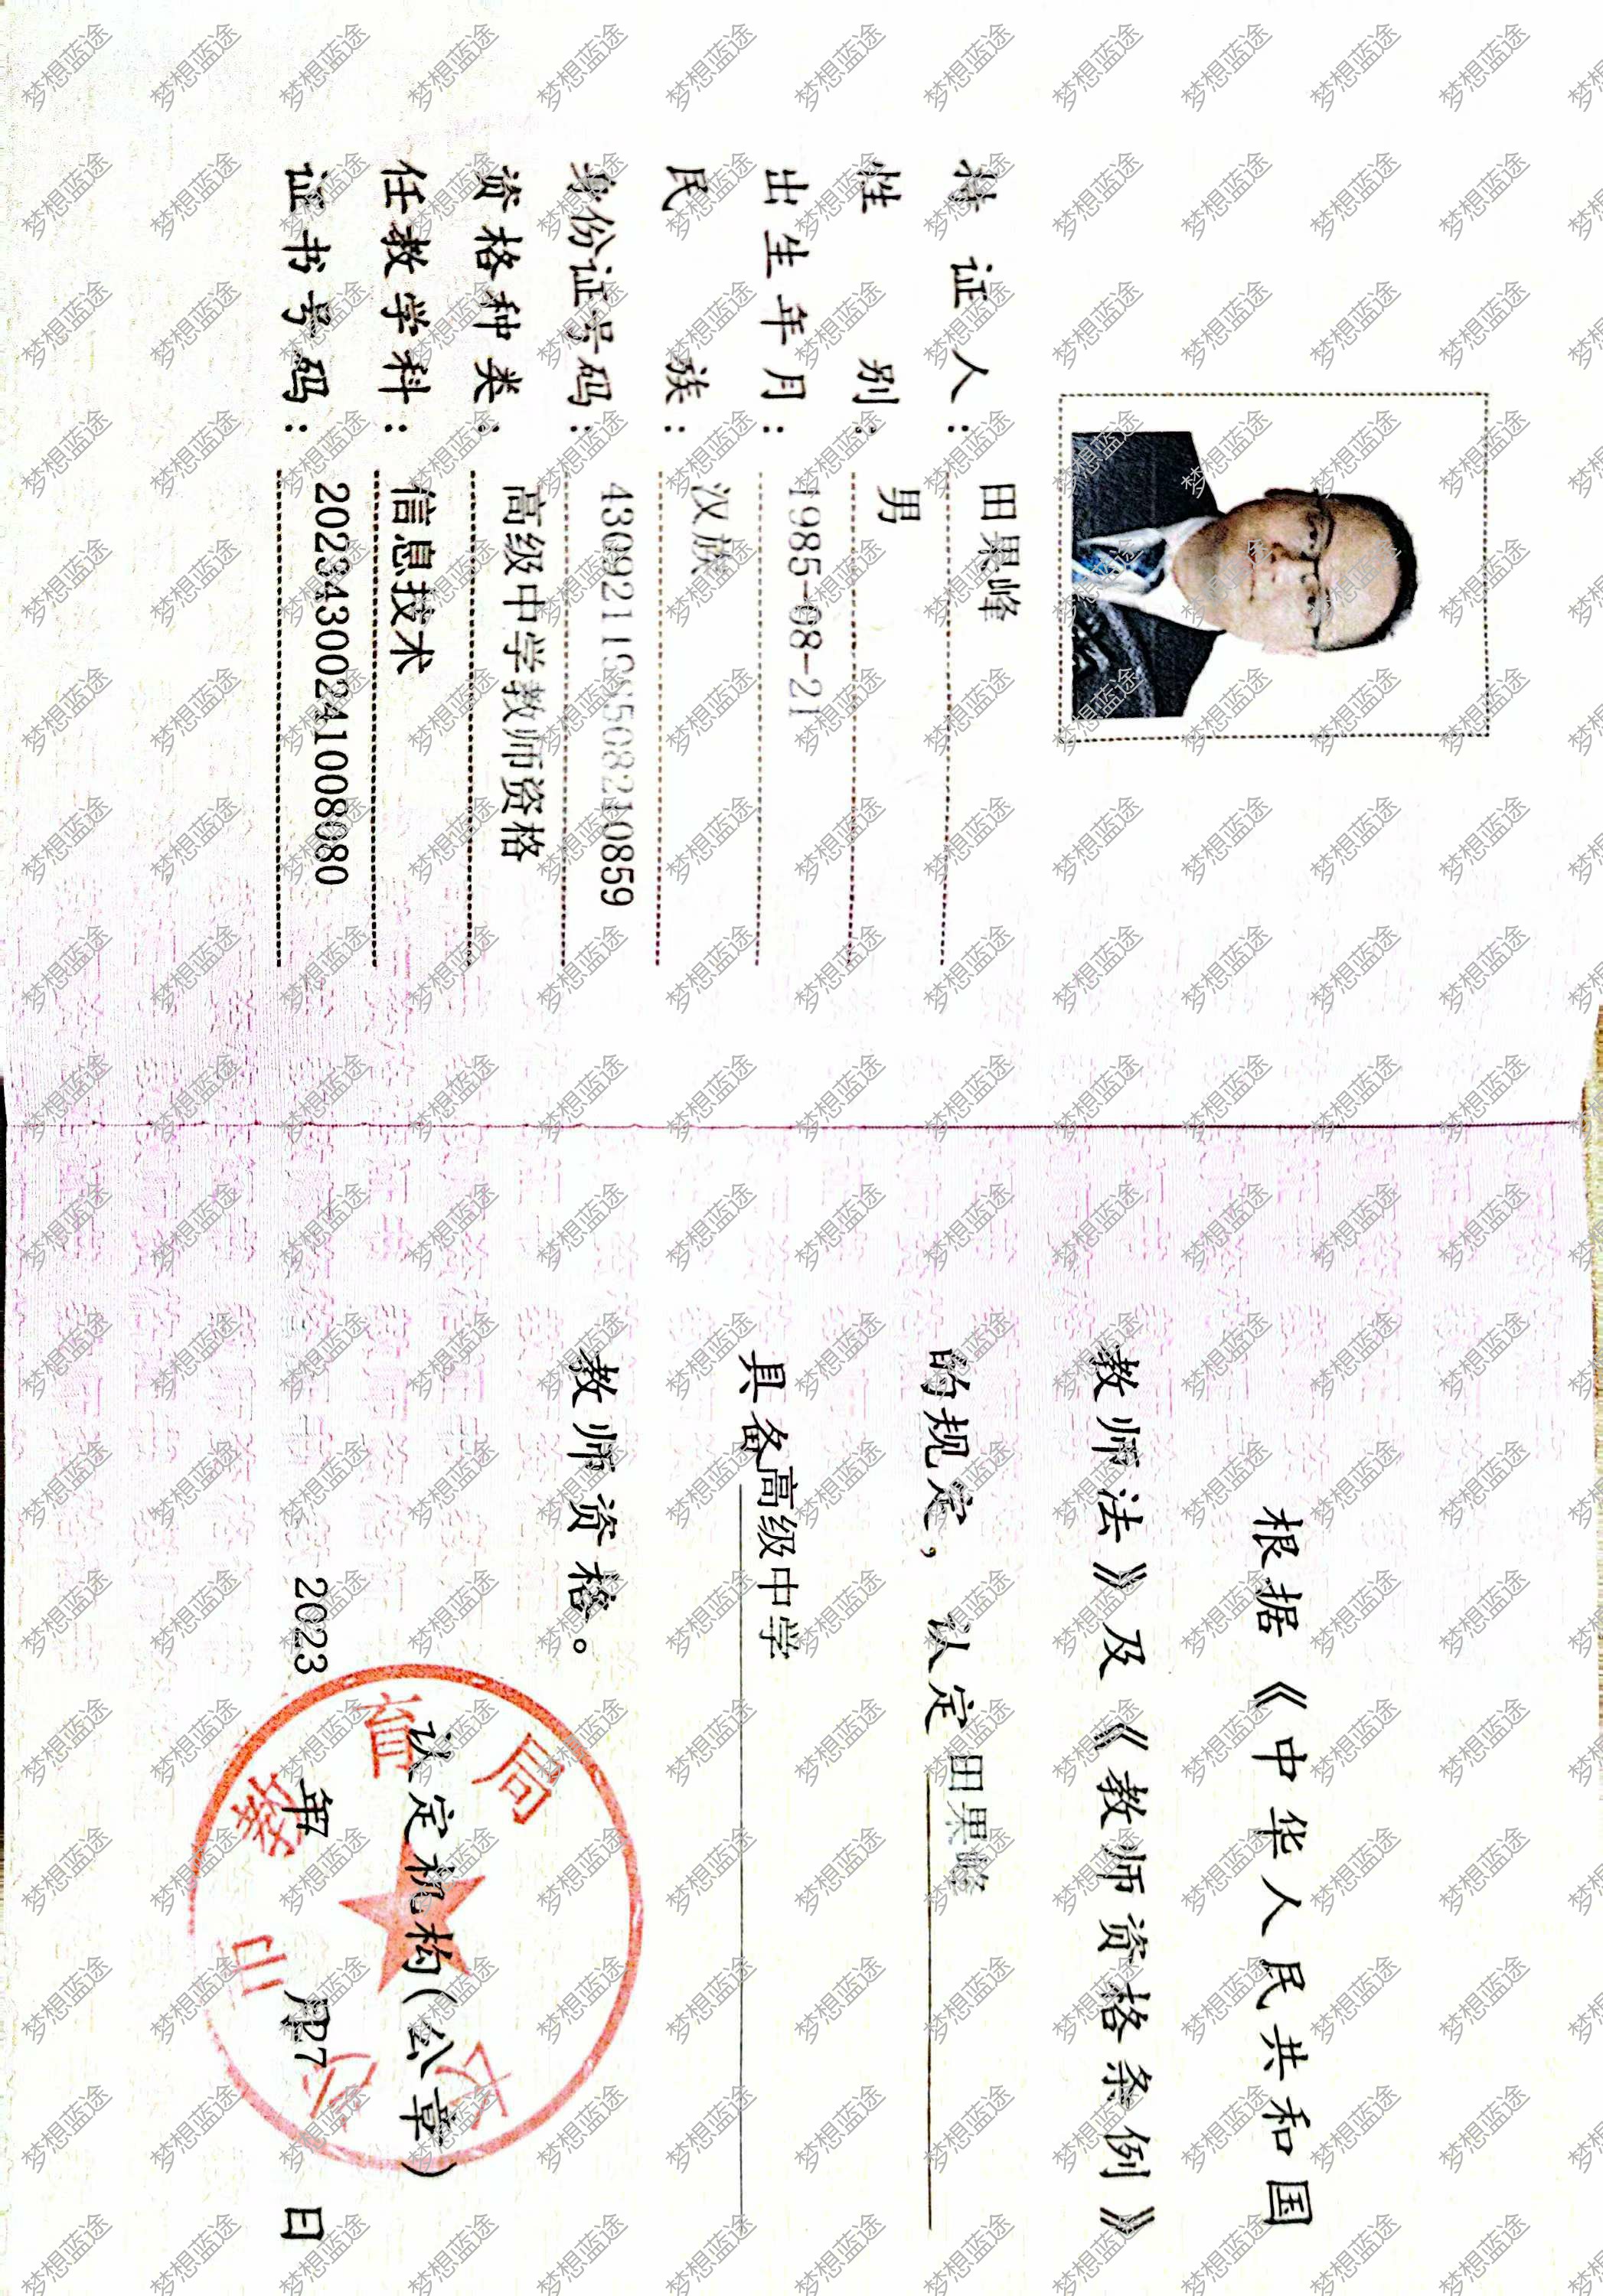 持证人：田果峰
性别：男
出生年月：1985-08-21
民族：汉族
身份证号码：430921198508210859
资格种类：高级中学教师资格
任教学科：信息技术
证书号码：20234300241008080
根据《中华人民共和国
教师法》及《教师资格条例》
的规定，认定田果峰
具备高级中学
教师资格。
认定机构(公章)
市教育局
2023年7月27日
梦想蓝途